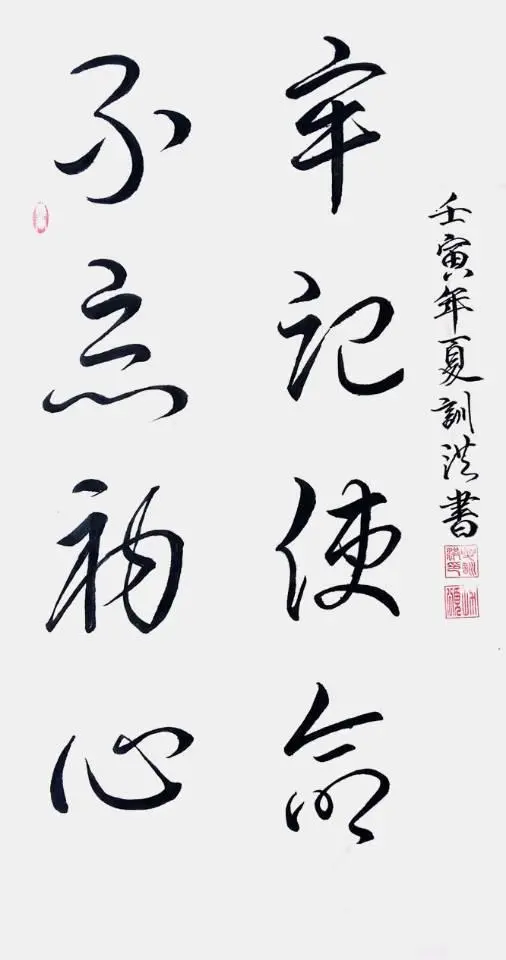 不忘初心
牢记使命
壬寅年夏訓洪書